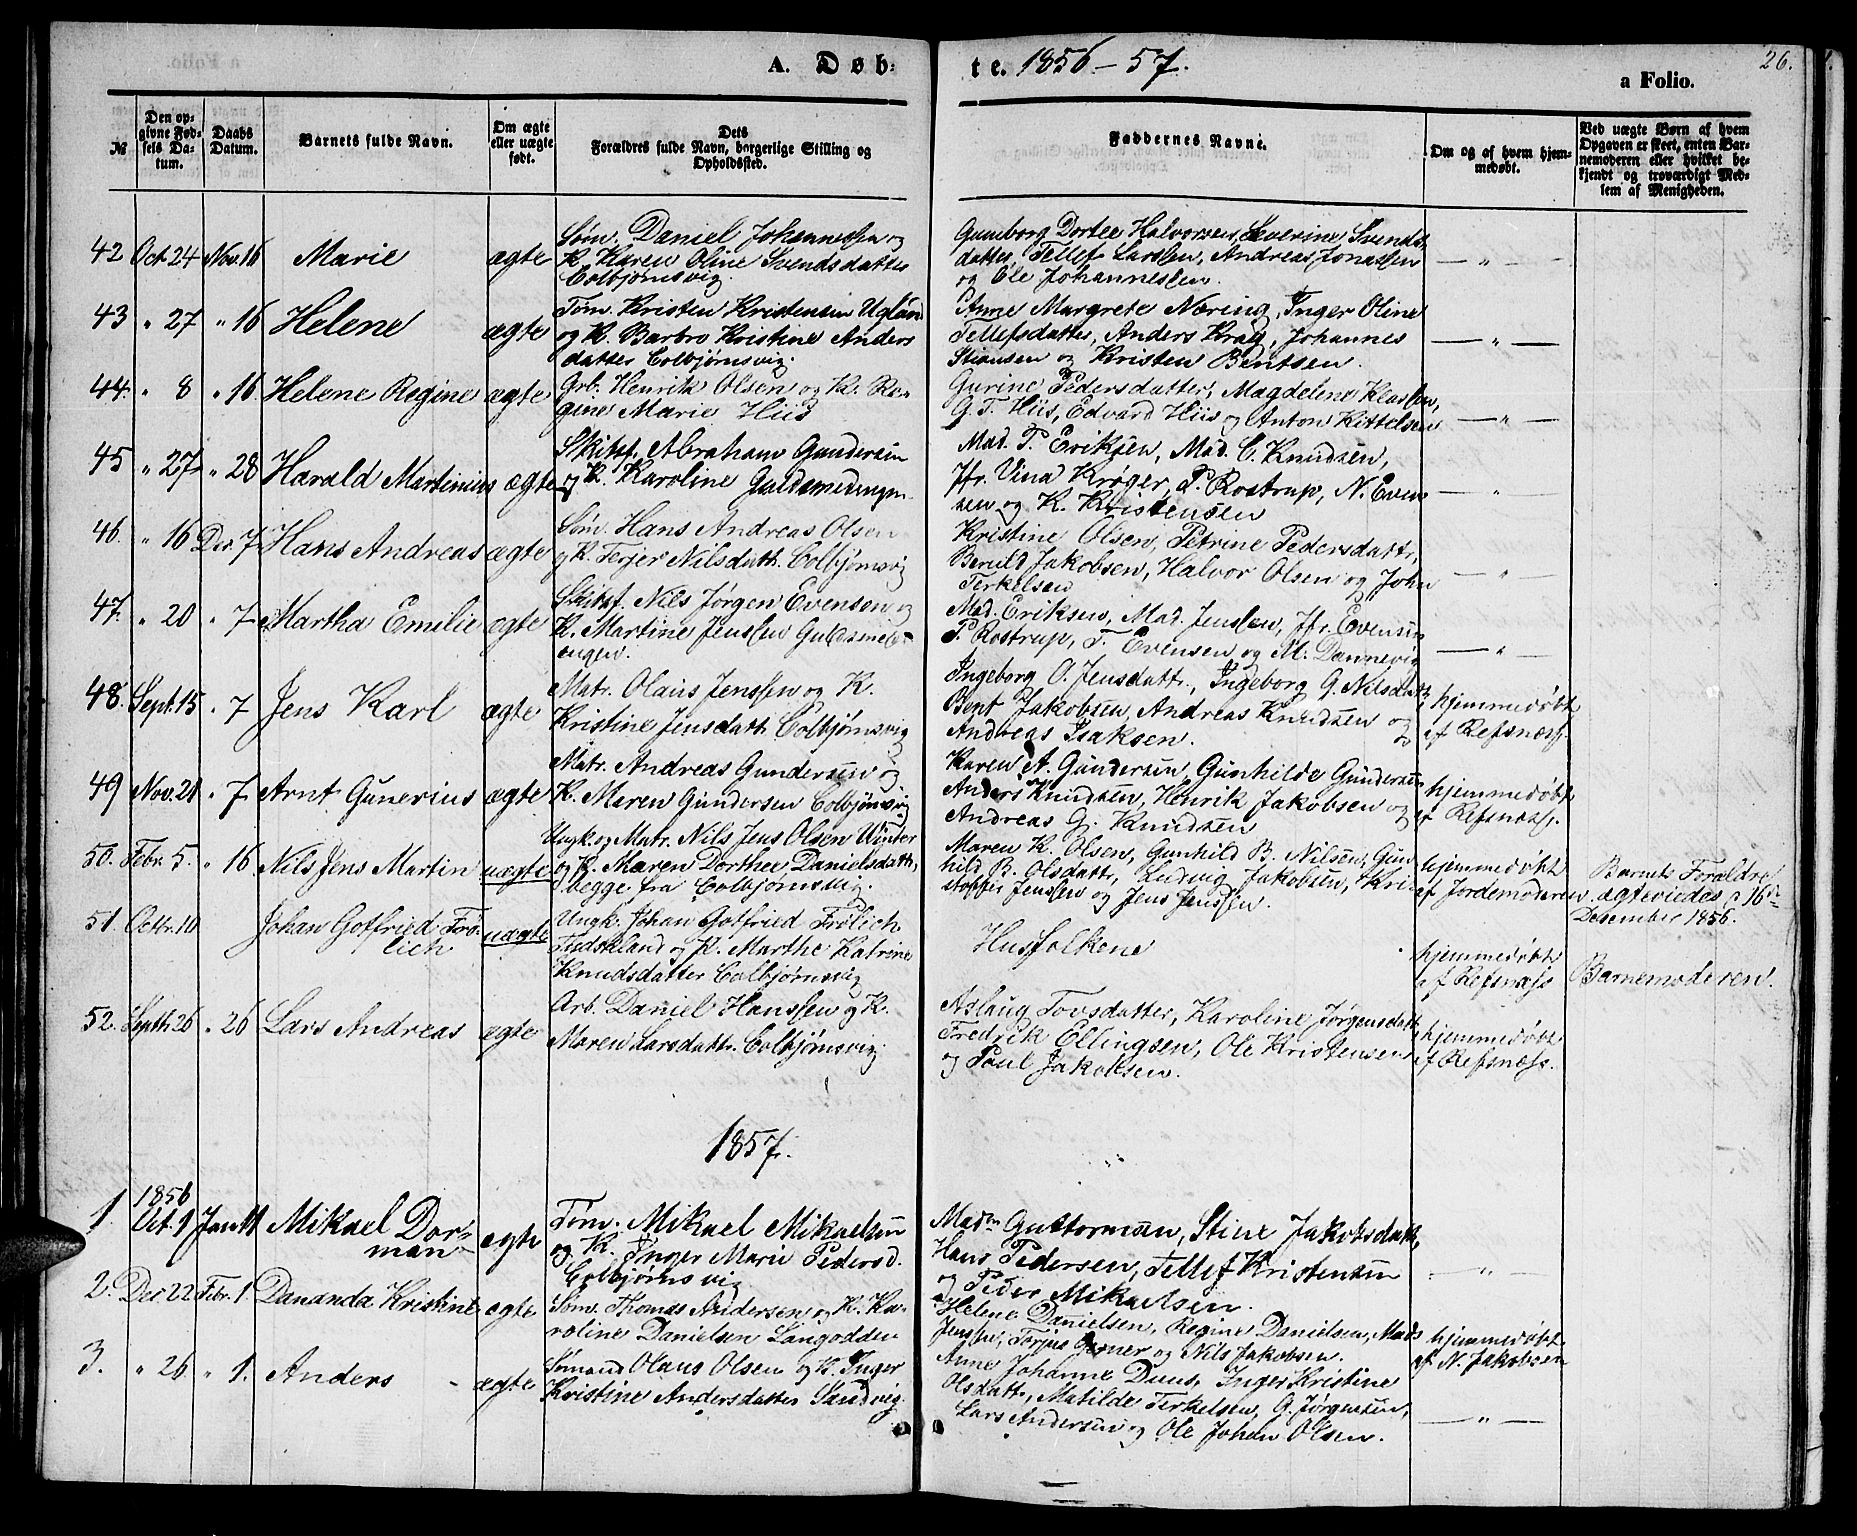 A. Døb-
te. 1856-57.
26.
a Folio.
№
Den op-
givne Fød-
sels Da-
tum.
Daabs
Datum.
Barnets fulde Navn.
Om ægte
eller uægte
født.
Dets
Forældres fulde Navn, borgerlige Stilling og
Opholdssted.
Faddernes Navne.
Om og af hvem hjem-
medøbt.
Ved uægte Børn af hvem
Opgaven er skeet, enten Bar-
nemoderen eller hvilket be-
kjendt og troværdigt Med-
lem af Menigheden.
42 Oct. 24 Nov. 16 Marie ægte
Søm. Daniel Johannessen og
K. Karen Oline Svendsdatter
Colbjørnsvig.
Gunborg Dortee Halvorsen, Severine Svends-
datter, Tellef Larssen, Andreas Jonassen
og Ole Johannessen.
— „ —
43 „ 27 „ 16 Helene ægte
Tøm. Kristen Kristensen Ugland
og K. Barbro Kristine Anders
datter Colbjørnsvig.
Anne Margrete Næring, Inger Oline
Tellefsdatter, Anders Krag, Johannes
Stiansen og Kristen Bentsen.
— „ —
44. „ 8 „ 16. Helene Regine ægte
Grb. Henrik Olsen og K. Re-
gine Marie Hiis
Gurine Pedersdatter, Magdelene Klassen,
G. T. Hiis, Edvard Hiis og Anton Kittelsen
— „ —
45 „ 27 „ 28 Harald Martinius ægte
Skibsf. Abraham Gundersen
og K. Karoline Guldsmedengen
Mad. P. Eriksen, Mad. C. Knudsen,
Jfr. Vina Krøger, P. Rostrup, N. Even-
sen og K. Kristensen
— „ —
46. „ 16 Dec. 7 Hans Andreas ægte
Søm. Hans Andreas Olsen
og K. Terjer Nilsdatt. Colbjørnsvig
Kristine Olsen, Petrine Pedersdattr,
Berulf Jakobsen, Halvor Olsen og John
Terkelsen
— „ —
47. „ 20 „ 7 Martha Emilie ægte
Skibsf. Nils Jørgen Evensen og
K. Martine Jenssen Guldsmed-
engen.
Mad. Eriksen, Mad. Jenssen, Jfr. Evensen
P. Rostrup, T. Evensen og M. Dannevig
— „ —
48. Sept. 15 „ 7 Jens Karl ægte
Matr. Olaus Jenssen og K.
Kristine Jensdatt. Colbjørnsvig
Ingeborg O. Jensdattr., Ingeborg G. Nilsdatt.
Bent Jakobsen, Andreas Knudsen og
Andreas Isaksen.
hjemmedøbt
af Refsnæss.
49 Nov. 21 „ 7 Arnt Gunerius ægte
Matr. Andreas Gundersen og
K. Maren Gundersen Colbjørnsvig
Karen A. Gundersen, Gunhilde Gundersen
Anders Knudsen, Henrik Jakobsen og
Andreas G. Knudsen
hjemmedøbt
af Refsnæss.
50. Febr. 5. „ 16 Nils Jens Martin uægte
Ungk. og Matr. Nils Jens Olsen Winter
og P. Maren Dorthee Danielsdatt,
begge fra Colbjørnsvig.
Maren K. Olsen, Gunhild B. Nilsen, Gun-
hild B. Olsdattr, Ludvig Jakobsen, Kri-
stoffer Jenssen og Jens Jenssen.
hjemmedøbt
af Jordemoderen
Barnets Forældre
ægteviedes 16de
Desember 1856.
51. Octbr. 10 Johan Gotfried Frø-
lich uægte
Ungk. Johan Gotfried Frølich
Tydskland og P. Marthe Katrine
Knudsdatter Colbjørnsvig
Husfolkene
hjemmedøbt
af Refsnæss
Barnemoderen.
52. Septb 26 „ 26 Lars Andreas ægte
Arb. Daniel Hanssen og K.
Maren Larsdattr. Colbjørnsvig
Aslaug Tovsdatter, Karoline Jørgensdatt.
Fredrik Ellingsen, Ole Kristensen
og Poul Jakobsen.
hjemmedøbt
af Refsnæss.
1857.
1856
1 Oct. 9 Jan. 11 Mikael Dor-
man ægte
Tøm. Mikael Mikaelsen
og K. Inger Marie Pedersd.
Colbjørnsvig
Madm Guttormsen, Stine Jakobsdatt,
Hans Pedersen, Tellef Kristensen
og Peder Mikaelsen.
— „ —
2. Dec. 22 Febr. 1. Dananda Kristine ægte
Søm. Thomas Andersen og K. Ka-
roline Danielsen Langodden
Helene Danielsen, Regine Danielsen, Mads
Jenssen, Terjus Garner og Nils Jakobsen.
hjemmedøbt
af N. Jakobsen
3. „ 26 „ 1. Anders ægte
Sømand Olaus Olsen og K. Inger
Kristine Andersdatter Sandvig.
Anne Johanne Duus, Inger Kristine
Olsdattr, Matilde Terkelsen, G. Jørgensen,
Lars Andersen og Ole Johan Olsen.
— „ —